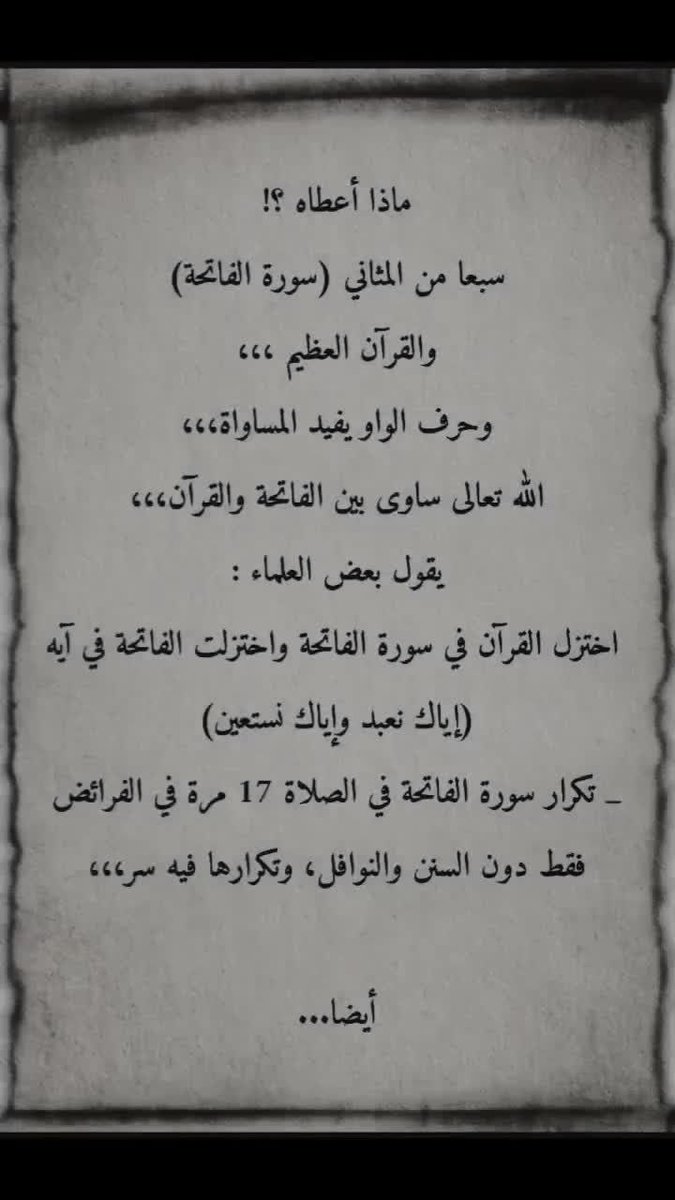 ماذا أعطاه ؟!
سبعا من المثاني (سورة الفاتحة)
والقرآن العظيم ،،،
وحرف الواو يفيد المساواة،،،
الله تعالى ساوى بين الفاتحة والقرآن،،،
يقول بعض العلماء :
اختزل القرآن في سورة الفاتحة واختزلت الفاتحة في آيه
(إياك نعبد وإياك نستعين)
_ تكرار سورة الفاتحة في الصلاة 17 مرة في الفرائض
فقط دون السنن والنوافل، وتكرارها فيه سر،،،
أيضا...